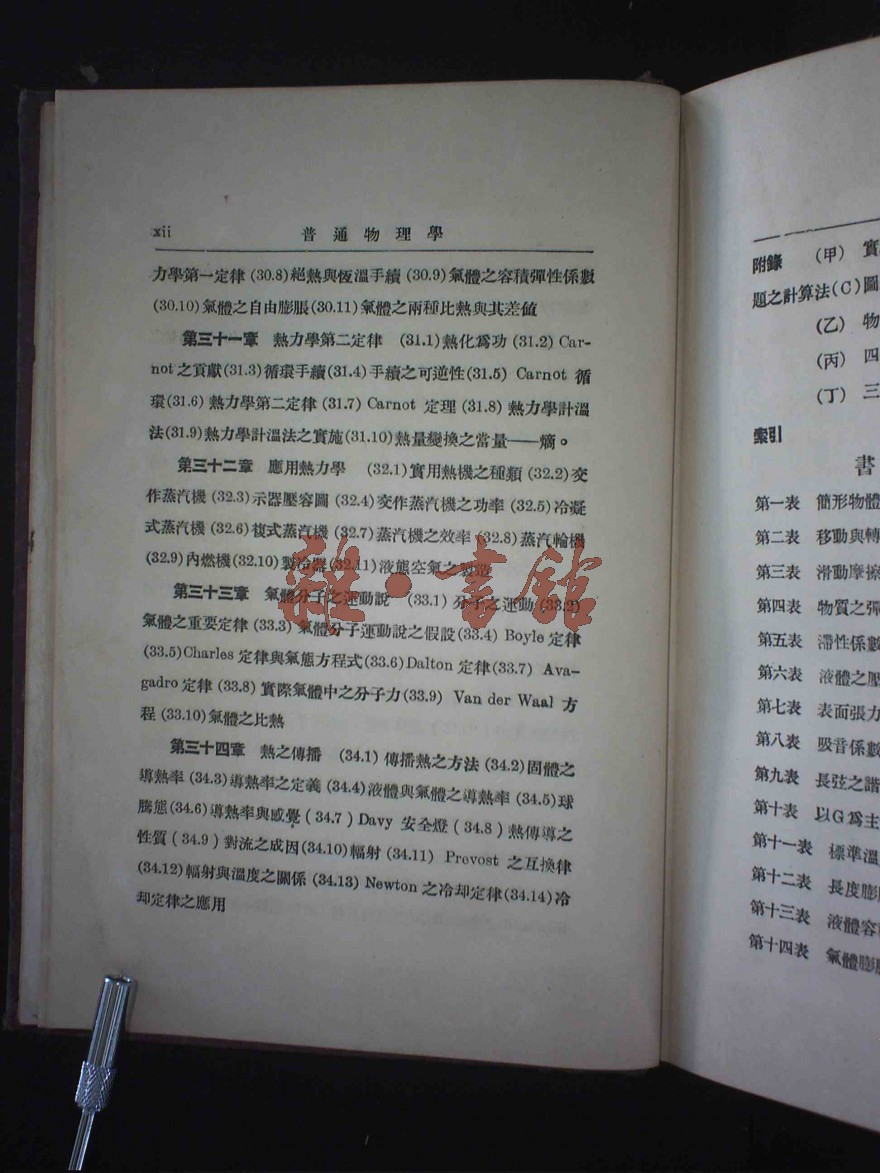 xii 普通物理學
力學第一定律(30.8)絕熱與恆溫手續(30.9)氣體之容積彈性係數
(30.10)氣體之自由膨脹(30.11)氣體之兩種比熱與其差値
第三十一章 熱力學第二定律 (31.1)熱化爲功(31.2) Car-
not之貢獻(31.3)循環手續(31.4)手續之可逆性(31.5) Carnot 循
環(31.6) 熱力學第二定律(31.7) Carnot 定理(31.8) 熱力學計溫
法(31.9)熱力學計溫法之實施(31.10)熱量變換之當量——熵。
第三十二章 應用熱力學 (32.1)實用熱機之種類(32.2)交
作蒸汽機(32.3)示器壓容圖(32.4)交作蒸汽機之功率(32.5)冷凝
式蒸汽機(32.6)複式蒸汽機(32.7)蒸汽機之效率(32.8)蒸汽輪機
(32.9)內燃機(32.10)製冷器(32.11)液態空氣之製造
雜·書館
第三十三章 氣體分子之運動說 (33.1) 分子之運動(33.2)
氣體之重要定律(33.3) 氣體分子運動說之假設(33.4) Boyle 定律
(33.5)Charles 定律與氣態方程式(33.6)Dalton 定律(33.7) Ava-
gadro定律(33.8) 實際氣體中之分子力(33.9) Van der Waal 方
程(33.10)氣體之比熱
第三十四章 熱之傳播 (34.1) 傳播熱之方法(34.2)固體之
導熱率(34.3)導熱率之定義(34.4)液體與氣體之導熱率(34.5)球
騰態(34.6)導熱率與感覺(34.7) Davy 安全燈(34.8)熱傳導之
性質(34.9)對流之成因(34.10)輻射(34.11) Prevost 之互換律
(34.12)輻射與溫度之關係(34.13) Newton 之冷却定律(34.14)冷
却定律之應用
附錄 (甲) 實
題之計算法(C)圖
(乙) 物
(丙) 四
(丁) 三
索引
書
第一表 簡形物體
第二表 移動與轉
第三表 滑動摩擦
第四表 物質之彈
第五表 滯性係數
第六表 液體之壓
第七表 表面張力
第八表 吸音係數
第九表 長弦之諧
第十表 以G爲主
第十一表 標準溫
第十二表 長度膨
第十三表 液體容
第十四表 氣體膨脹